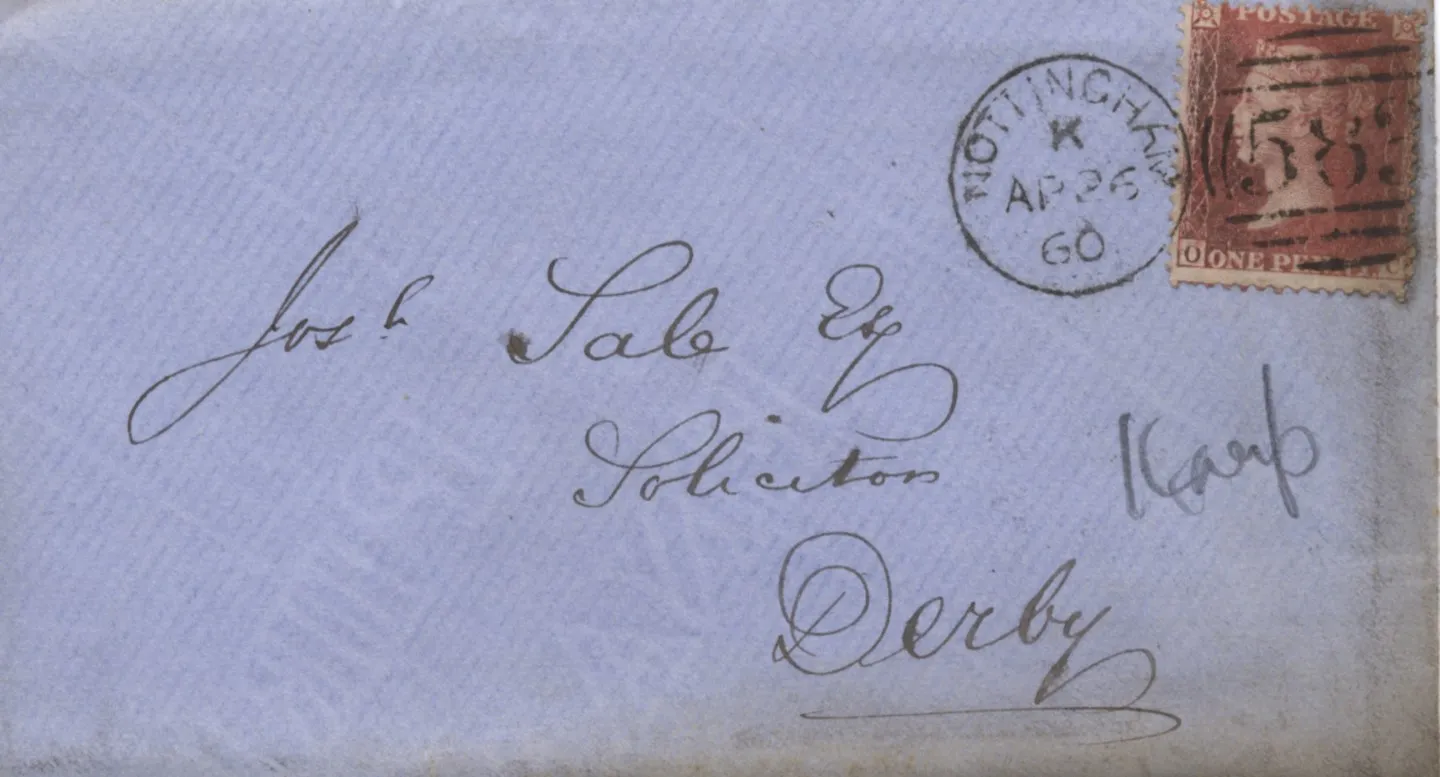 POSTAGE
NOTTINGHAM
K
AP 26
60
583
O ONE PENNY
Josh Sale Esq
Solicitor
Derby